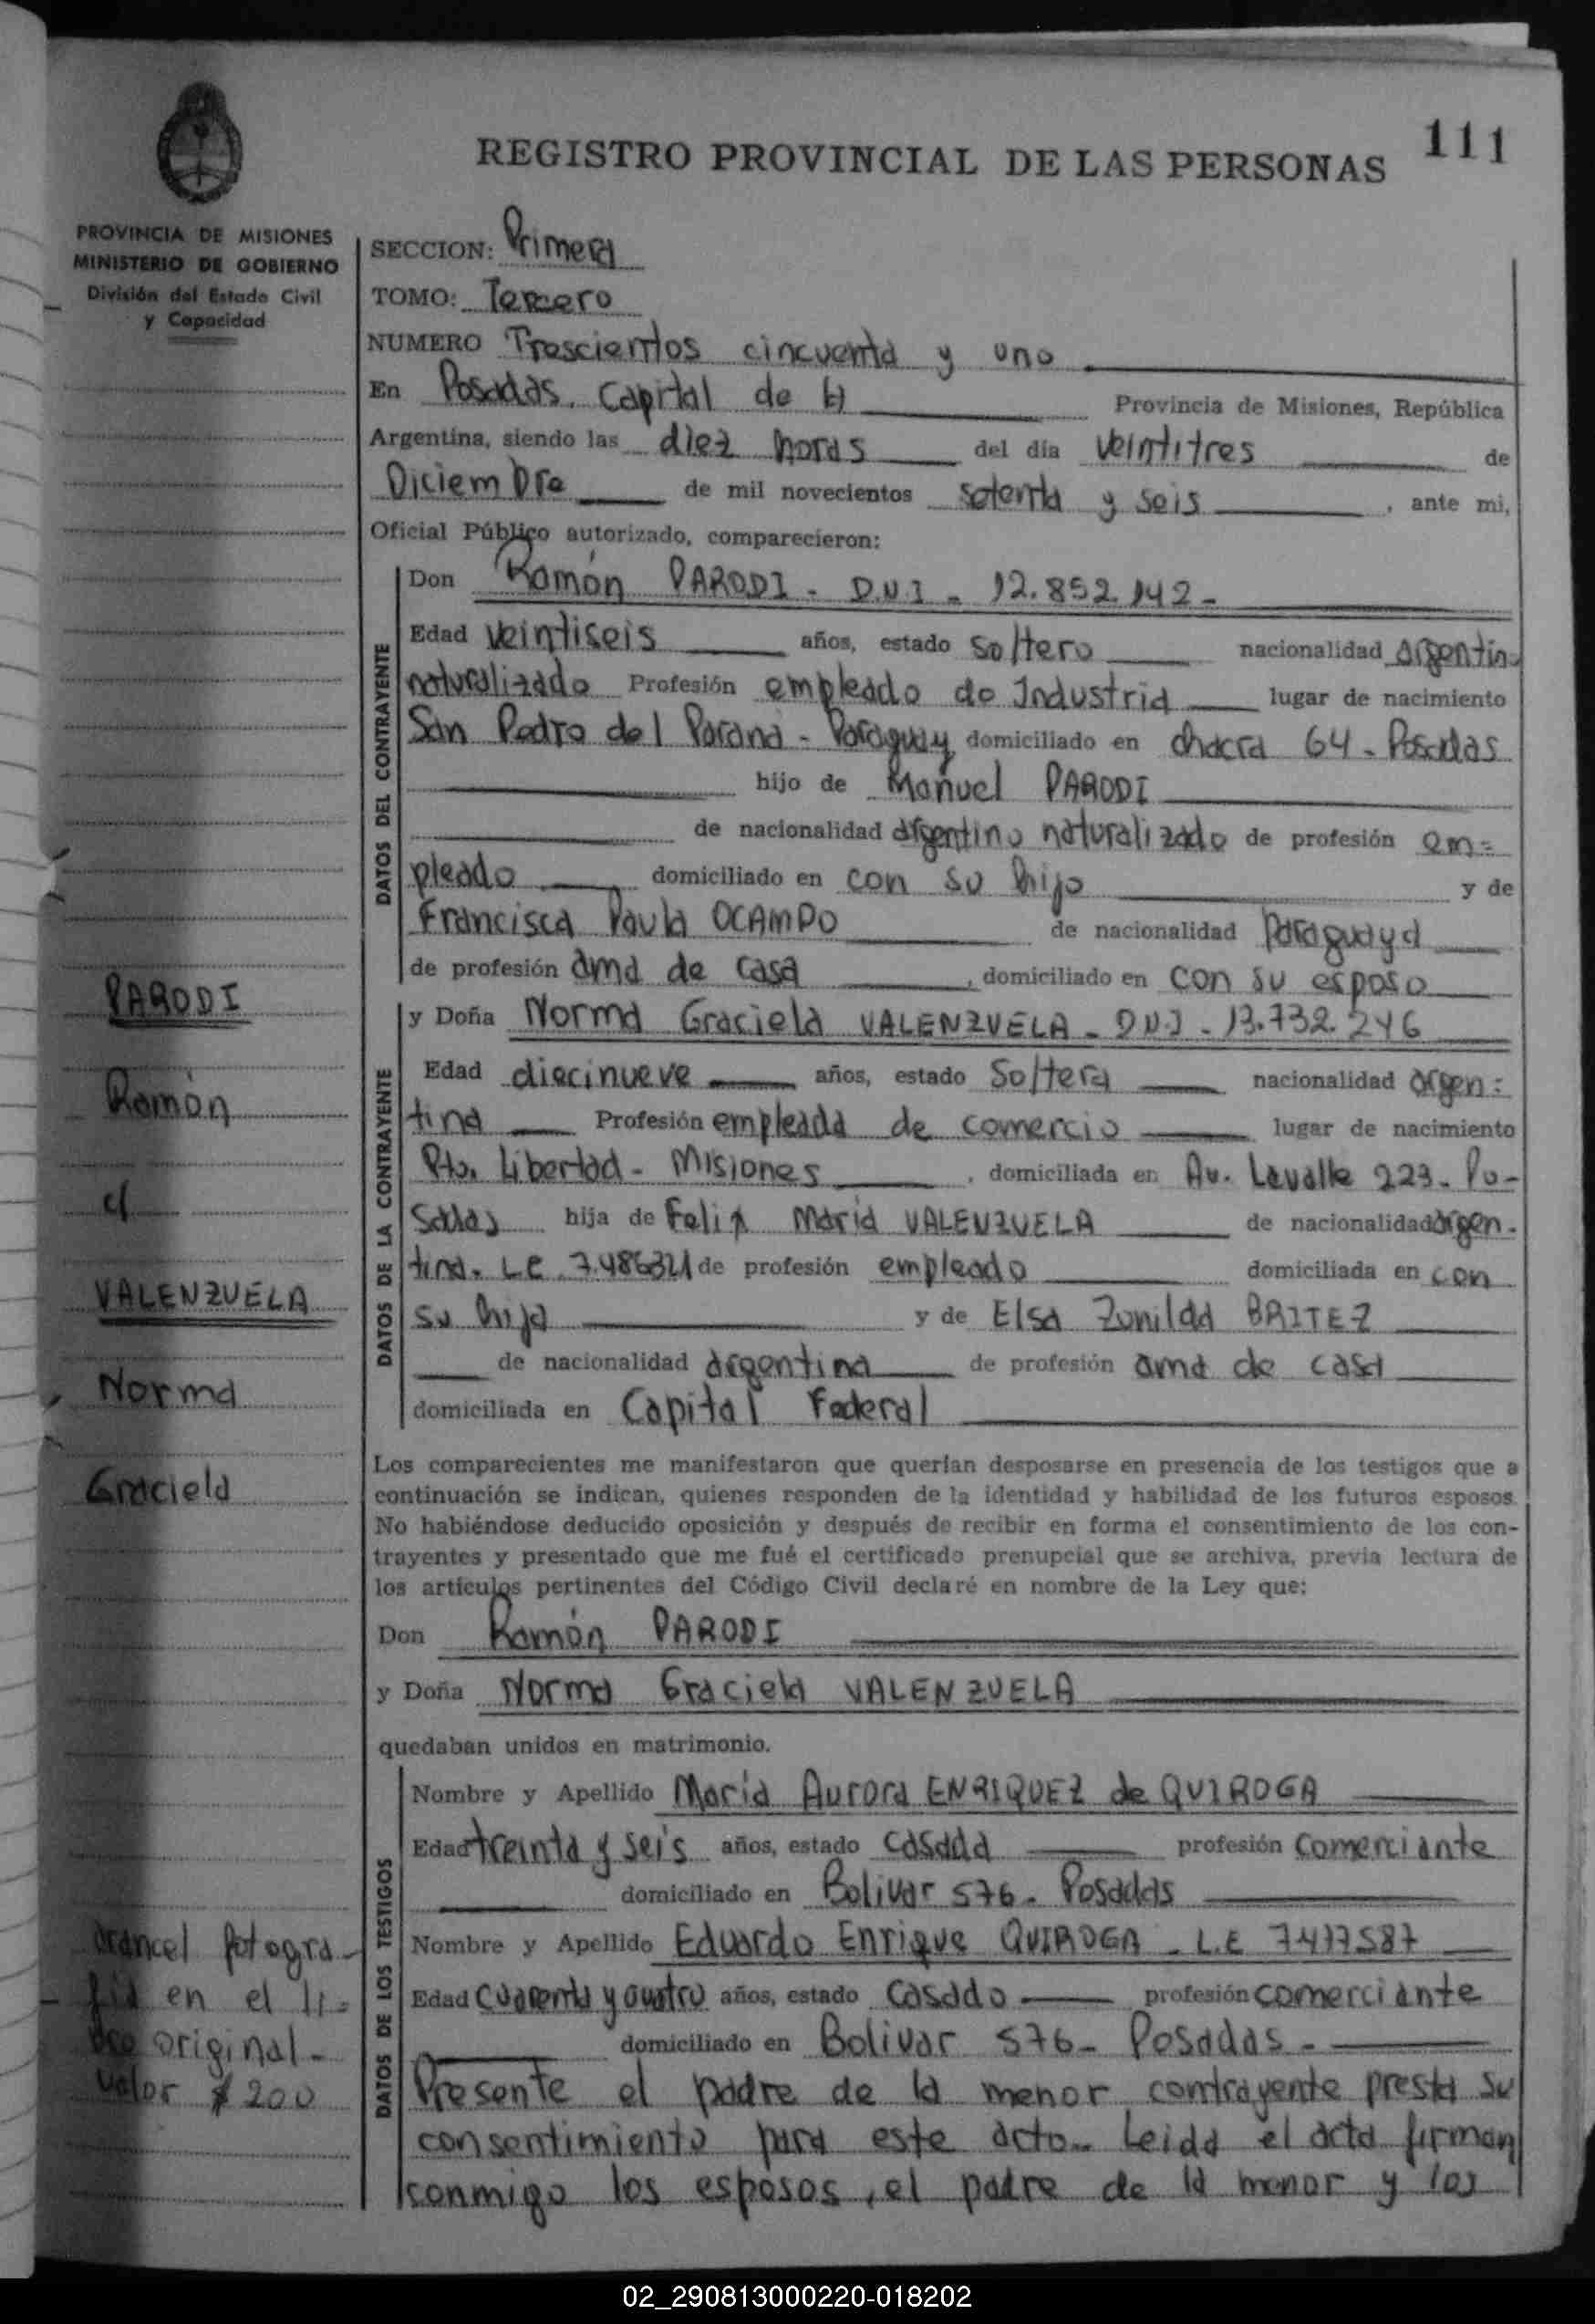 111
REGISTRO PROVINCIAL DE LAS PERSONAS
PROVINCIA DE MISIONES
MINISTERIO DE GOBIERNO
División del Estado Civil
y Capacidad
SECCION: Primera
TOMO: Tercero
NUMERO Trescientos cincuenta y uno
En Posadas, Capital de la Provincia de Misiones, República
Argentina, siendo las diez horas del día veintitres de
Diciembre de mil novecientos setenta y seis, ante mi,
Oficial Público autorizado, comparecieron:
DATOS DEL CONTRAYENTE
Don Ramón PARODI - D.N.I - 12.852.142-
Edad veintiseis años, estado soltero nacionalidad argentino
naturalizado Profesión empleado de Industria lugar de nacimiento
San Pedro del Paraná - Paraguay domiciliado en chacra 64 - Posadas
hijo de Manuel PARODI
de nacionalidad argentino naturalizado de profesión em=
pleado domiciliado en con su hijo y de
Francisca Paula OCAMPO de nacionalidad Paraguaya
de profesión ama de casa, domiciliado en con su esposo
DATOS DE LA CONTRAYENTE
y Doña Norma Graciela VALENZUELA - D.N.I - 13.732.246
Edad diecinueve años, estado Soltera nacionalidad argen=
tina Profesión empleada de comercio lugar de nacimiento
Pto. Libertad - Misiones, domiciliada en Av. Lavalle 223 - Po-
sadas hija de Felix Maria VALENZUELA de nacionalidad argen-
tina. LE 7.486321 de profesión empleado domiciliada en con
su hija y de Elsa Zunilda BRITEZ
de nacionalidad argentina de profesión ama de casa
domiciliada en Capital Federal
Los comparecientes me manifestaron que querían desposarse en presencia de los testigos que a
continuación se indican, quienes responden de la identidad y habilidad de los futuros esposos.
No habiéndose deducido oposición y después de recibir en forma el consentimiento de los con-
trayentes y presentado que me fué el certificado prenupcial que se archiva, previa lectura de
los artículos pertinentes del Código Civil declaré en nombre de la Ley que:
Don Ramón PARODI
y Doña Norma Graciela VALENZUELA
quedaban unidos en matrimonio.
DATOS DE LOS TESTIGOS
Nombre y Apellido Maria Aurora ENRIQUEZ de QUIROGA
Edad treinta y seis años, estado casada profesión comerciante
domiciliado en Bolivar 576 - Posadas
Nombre y Apellido Eduardo Enrique QUIROGA - L.E 7477587
Edad cuarenta y cuatro años, estado casado profesión comerciante
domiciliado en Bolivar 576 - Posadas -
Presente el padre de la menor contrayente presta su
consentimiento para este acto.- Leida el acta firman
conmigo los esposos, el padre de la menor y los
PARODI
Ramón
c/
VALENZUELA
Norma
Graciela
arancel fotogra-
fia en el li=
bro original-
Valor $ 200
02_290813000220-018202